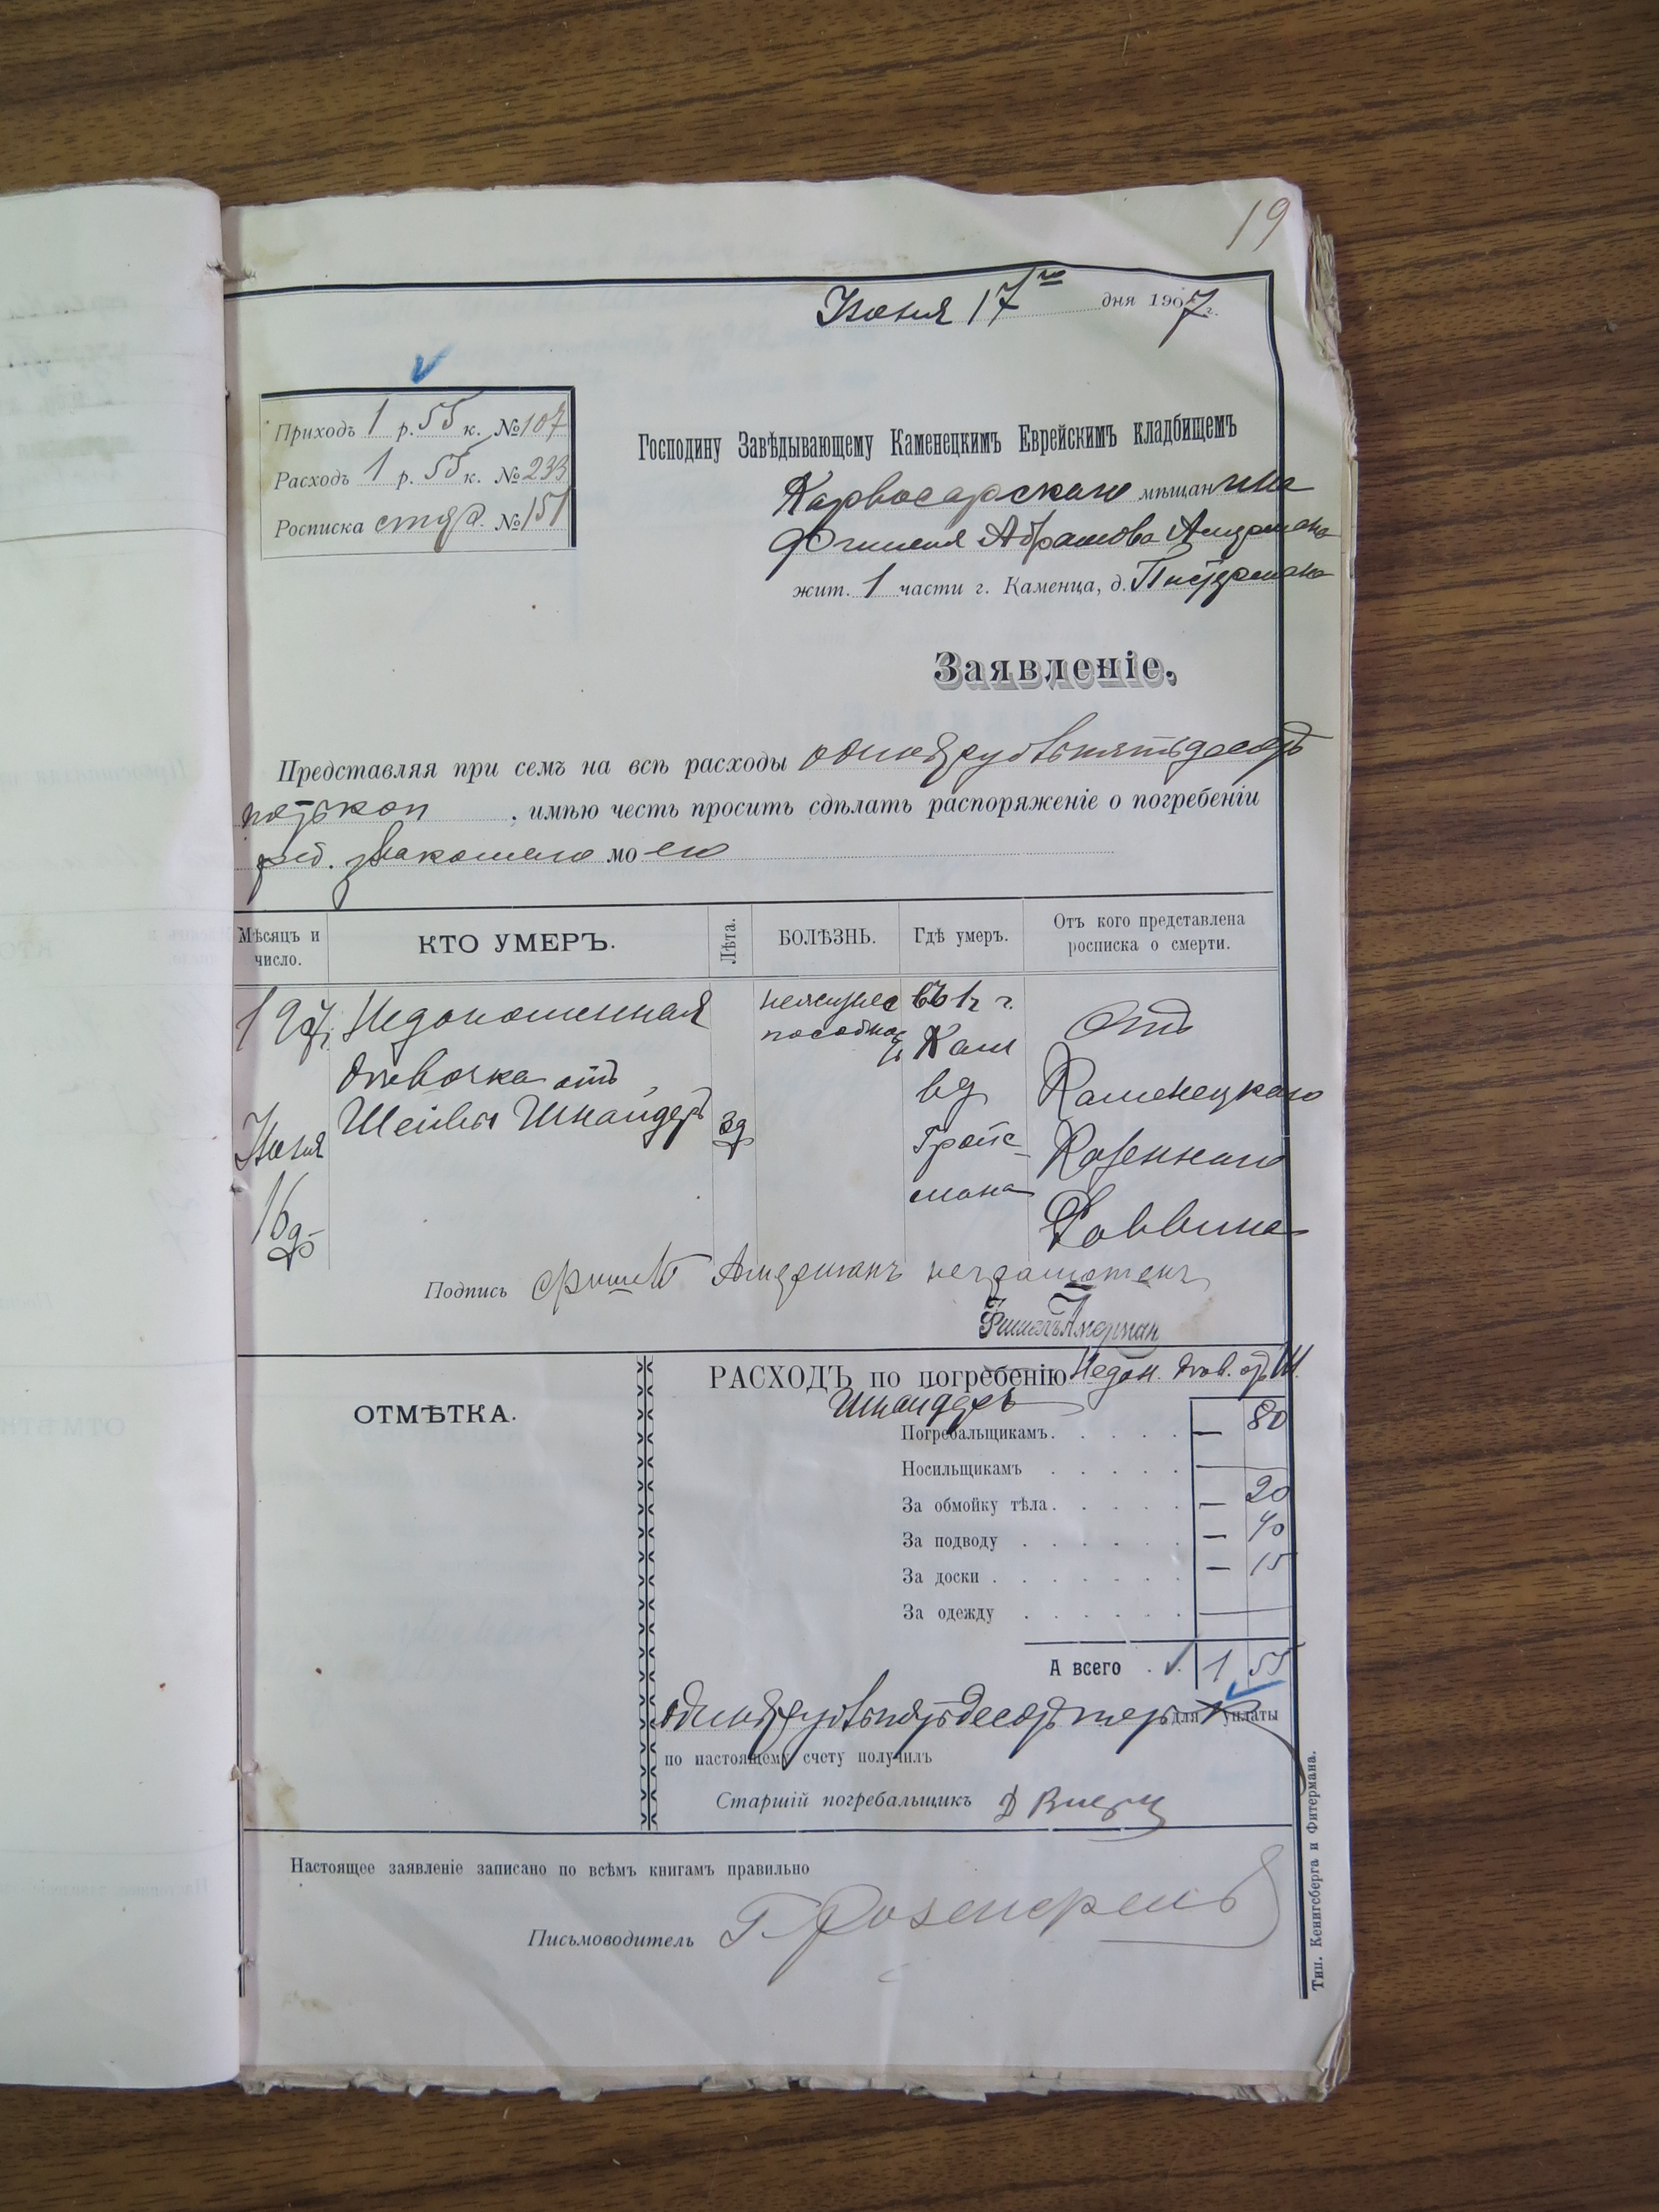 19
Іюня 17го дня 1907 г.
Приходъ 1 р. 55 к. №107
Расходъ 1 р. 55 к. №233
Росписка стар. №151
Господину Завѣдывающему Каменецкимъ Еврейскимъ кладбищемъ
Карвосарскаго мѣщанина
Фишеля Абрамова Амдрмана
жит. 1 части г. Каменца, д. Питермана
Заявленіе.
Представляя при семъ на всѣ расходы одинъ рубль пятьдесятъ
пять коп , имѣю честь просить сдѣлать распоряженіе о погребеніи
реб. знакомаго моего
Мѣсяцъ и число.
КТО УМЕРЪ.
Лѣта.
БОЛѢЗНЬ.
Гдѣ умеръ.
Отъ кого представлена росписка о смерти.
1907 г. Іюня 16 д.
Недоношенная
дѣвочка отъ
Шейвы Шнайдеръ
3 д
въ 1 ч г.
Кам
в д
Гройс-
мана
Отъ
Каменецкаго
Казеннаго
Раввина
Подпись Фишель Амдрманъ неграмотенъ
РАСХОДЪ по погребенію Недон. дѣв. отъ Ш.
Шнайдеръ
ОТМѢТКА.
Погребальщикамъ. — 80
Носильщикамъ —
За обмойку тѣла. — 20
За подводу — 40
За доски — 15
За одежду —
А всего 1 55
одинъ рубль пятьдесятъ пять для уплаты
по настоящему счету получилъ
Старшій погребальщикъ Д
Настоящее заявленіе записано по всѣмъ книгамъ правильно
Письмоводитель Г.
Тип. Кенигсберга и Фитермана.